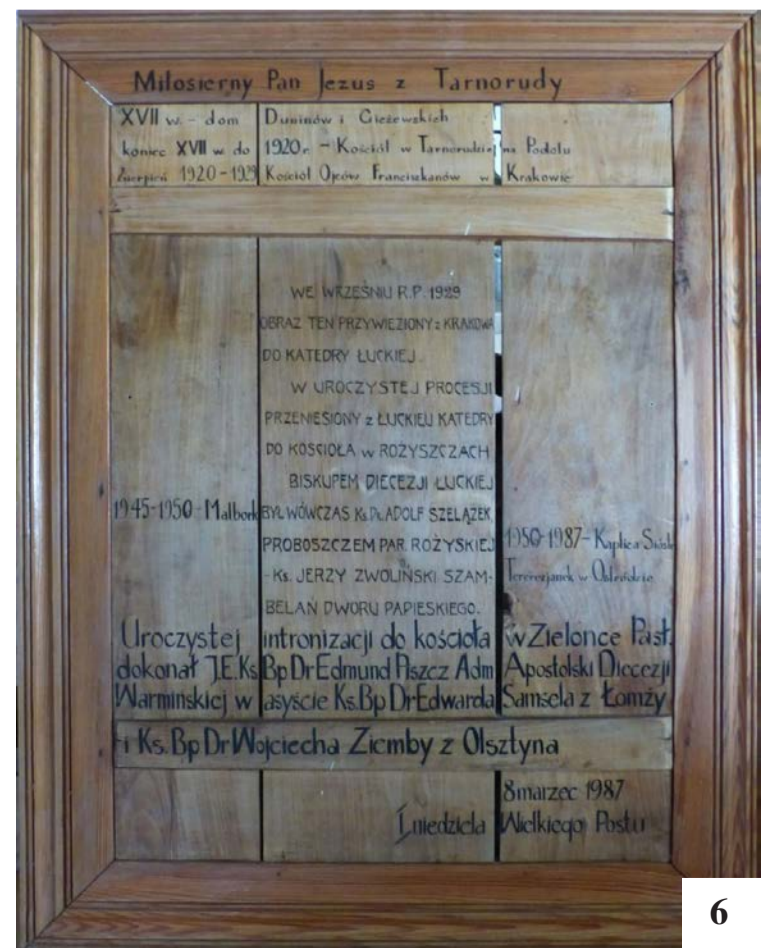 Miłosierny Pan Jezus z Tarnorudy
XVII w. - dom Duninów i Giżewskich
koniec XVII w. do 1920 r. - Kościół w Tarnorudzie na Podolu
Zsierpień 1920-1929 Kościół Ojców Franciszkanów w Krakowie
WE WRZEŚNIU R.P. 1929
OBRAZ TEN PRZYWIEZIONY z KRAKOWA
DO KATEDRY ŁUCKIEJ.
W UROCZYSTEJ PROCESJI
PRZENIESIONY z ŁUCKIEJ KATEDRY
DO KOŚCIOŁA w ROŻYSZCZACH
BISKUPEM DIECEZJI ŁUCKIEJ
1945-1950 - Malbork
BYŁ WÓWCZAS Ks. Dr. ADOLF SZELĄŻEK,
PROBOSZCZEM PAR. ROŻYSKIEJ
- Ks. JERZY ZWOLIŃSKI SZAM-
BELAN DWORU PAPIESKIEGO.
1950-1987 - Kaplica Sióstr
Terezjanek w
Uroczystej intronizacji do kościoła w Zielonce Pasł.
dokonał J.E.Ks Bp Dr Edmund Piszcz Adm Apostolski Diecezji
Warmińskiej w asyście Ks.Bp Dr Edwarda Samsela z Łomży
i Ks. Bp Dr Wojciecha Ziemby z Olsztyna
8 marzec 1987
I niedziela Wielkiego Postu
6